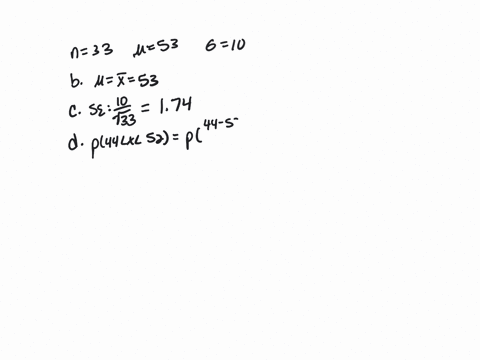 n=33 μ=53 6=10
b. μ=x̄=53
c. SE: 10/√33 = 1.74
d. p(44<x<52)=p(44-5